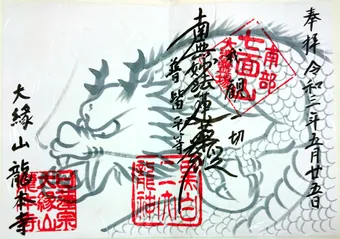 奉拝 令和三年五月廿五日
南部
七面山
我願一切
南無妙法蓮華経
普皆平等
大縁山 龍本寺
日蓮宗
大縁山
龍本寺
黒白
一体
龍神